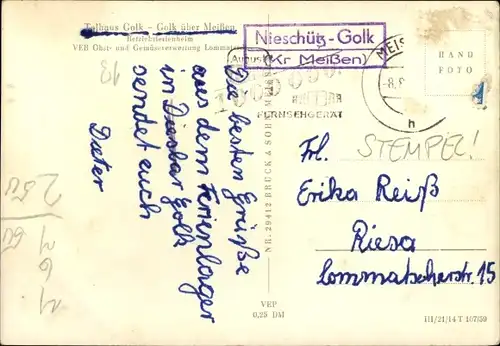 Talhaus Golk - Golk über Meißen
Betriebsferienheim
VEB Obst- und Gemüseverwertung Lommatzsch
Nieschütz-Golk
(Kr Meißen)
MEISS
-8.
h
HAND
FOTO
FERNSEHGERÄT
13
Die besten Grüße
aus dem Ferienlager
in Diesbar Golk
sendet euch
Dieter
NR. 29412 BRÜCK & SOHN MEISSEN
STEMPEL!
Frl.
Erika Reiß
Riesa
Lommatscherstr. 15
VEP
0,25 DM
III/21/14 T 107/59